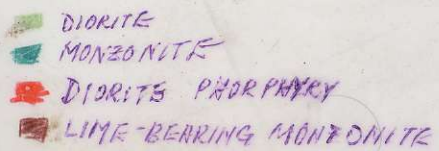 DIORITE
MONZONITE
DIORITE PHORPHYRY
LIME-BEARING MONZONITE